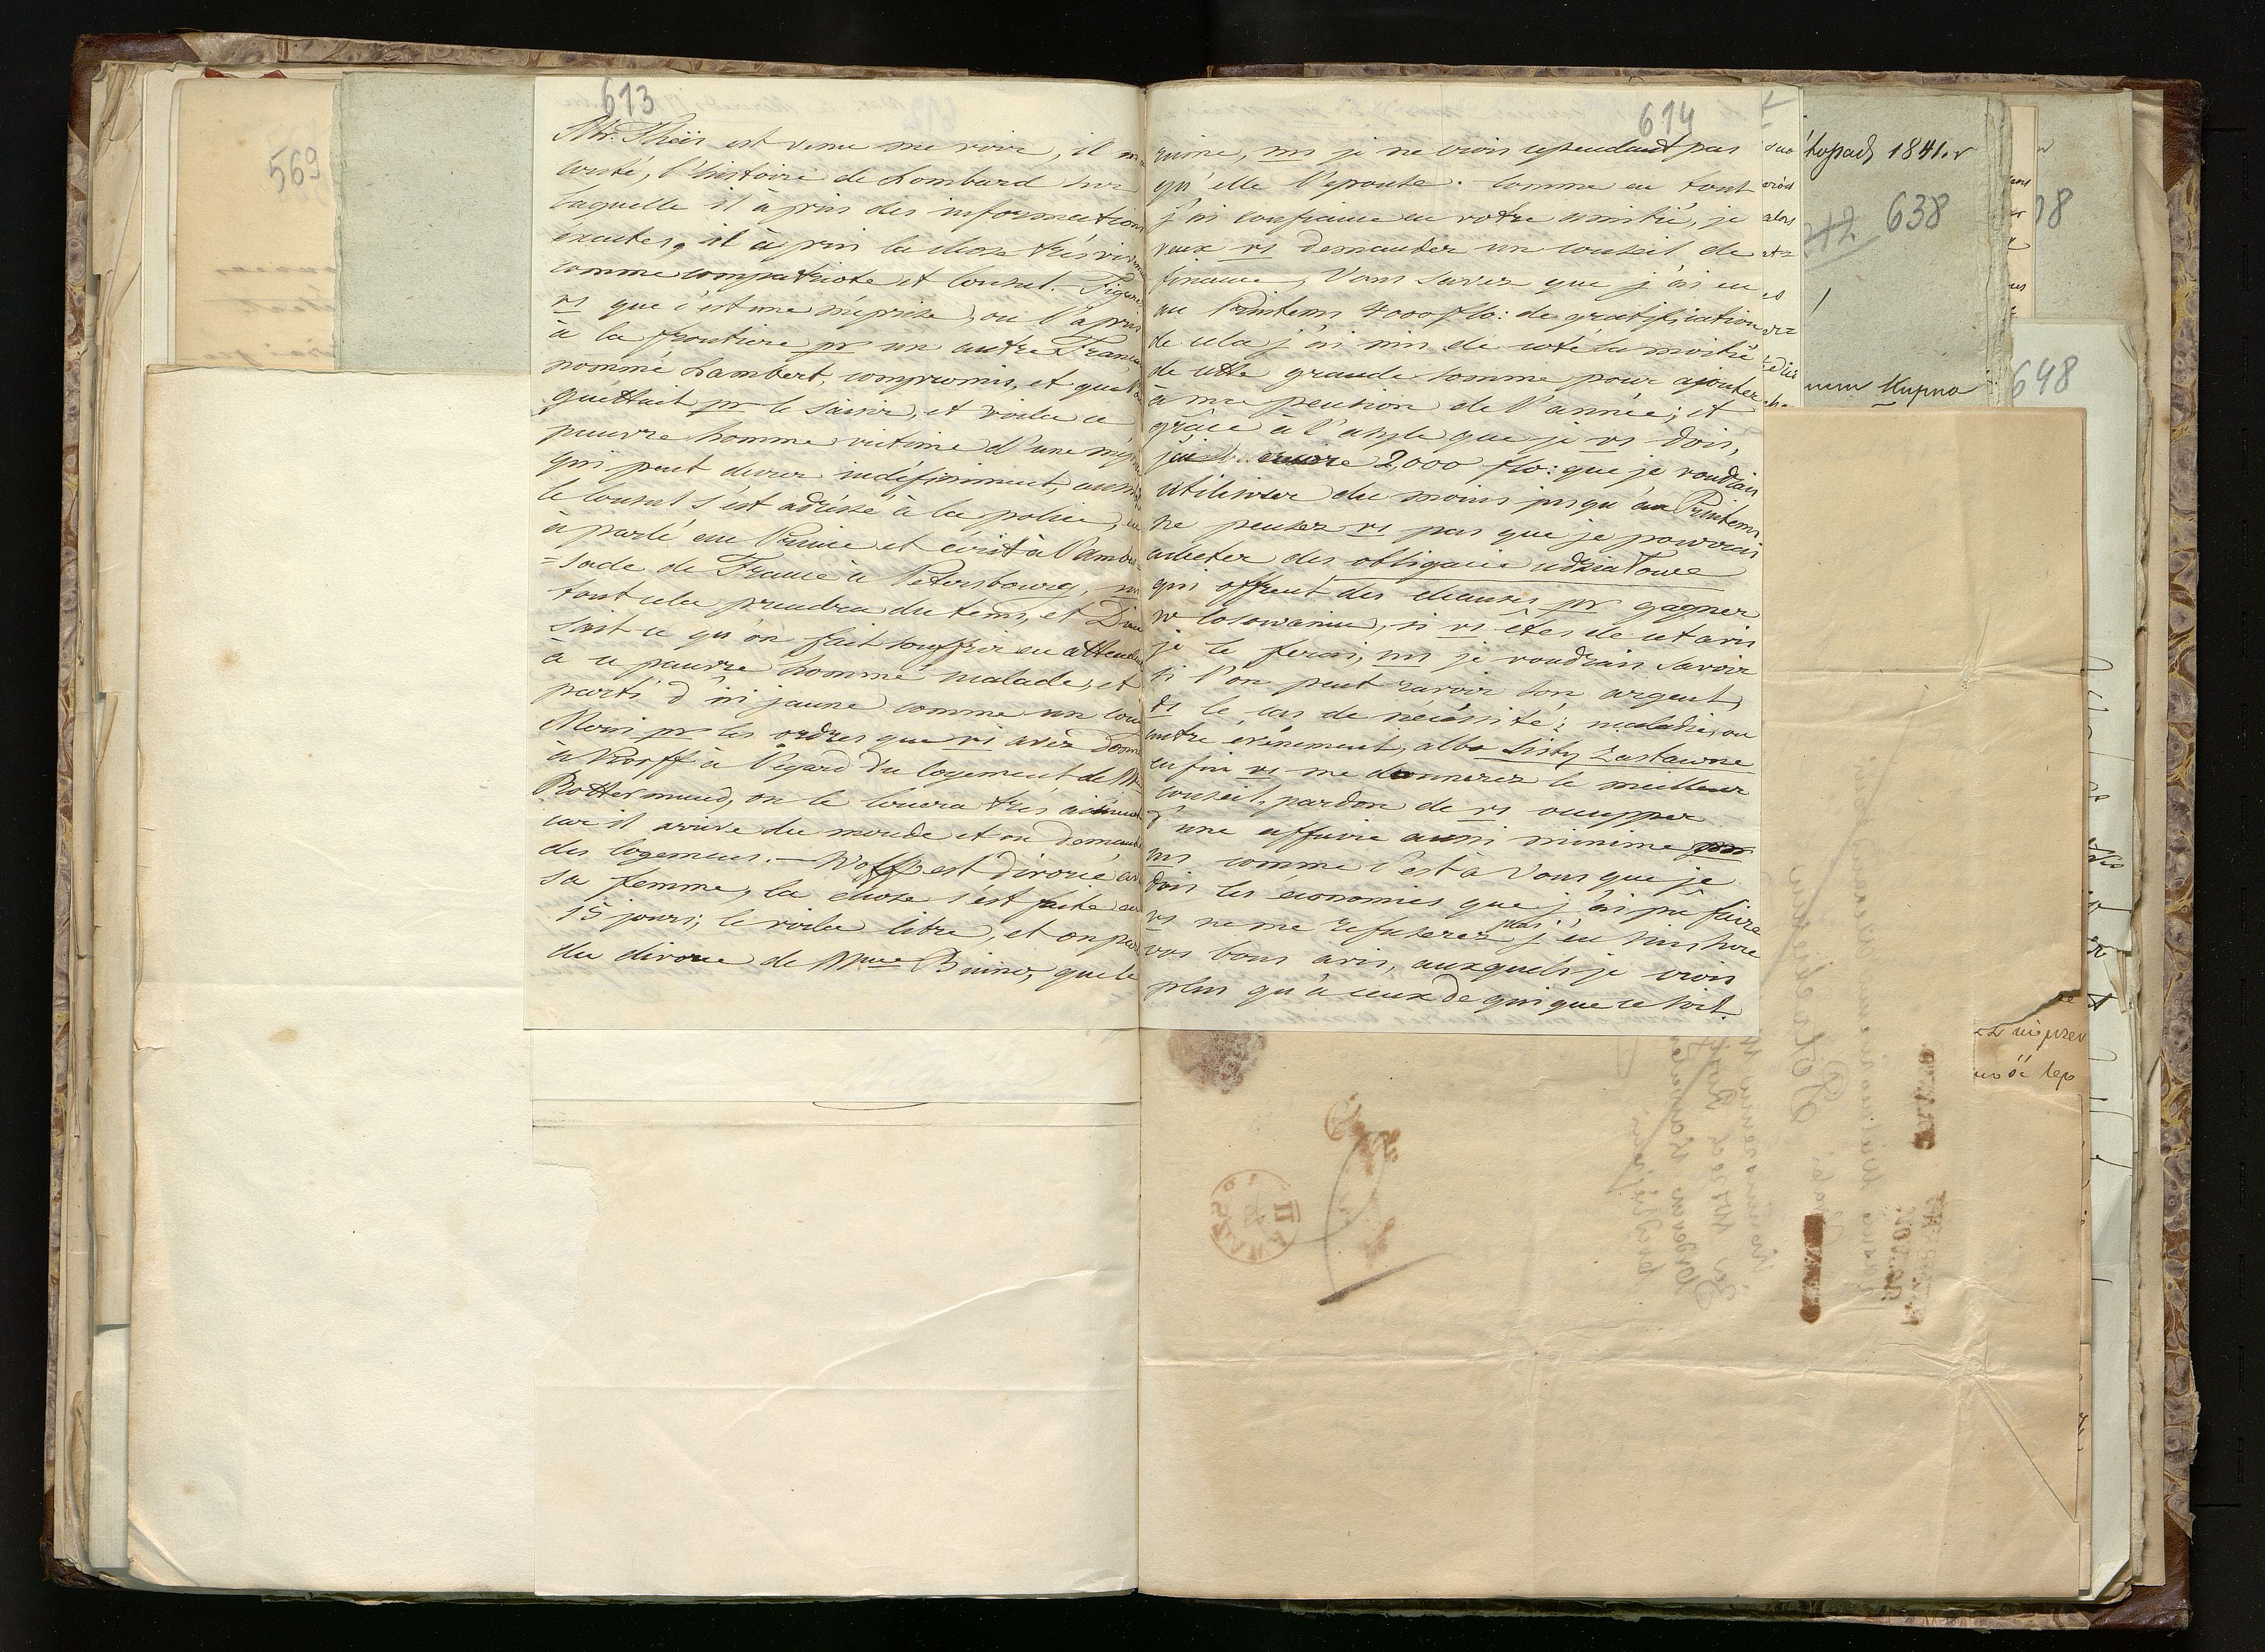 613
Mr. Théis est venu me voir, il m'a
conté, l'histoire de Lombard sur
laquelle il à pris des informations
exactes, il à pris la chose très vivem
comme compatriote et Consul. Figurez
vs que c'est une méprise, on l'a pris
à la frontière pr un autre Français
nommé Lambert, compromis, et que l'on
guettait pr le saisir, et voila ce
pauvre homme victime d'une mépr
qui peut durer indéfiniment, aussi
le Consul s'est adressé à la police, en
à parlé au Prince et écrit à l'ambas-
=sade de France à Petersbourg, ms
tout cela prendra du tems, et Dieu
sait ce qu'on fait souffrir en attendant
à ce pauvre homme malade, et
parti d'ici jaune comme un cou
Merci pr les ordres que vs avez donn
à Korff à l'égard du logement de Me
Rottermund, on le louera très aisément
car il arrive du monde et on demande
des logemens. — Wolff est divorcé av
sa femme, la chose s'est faite en
15 jours; le voila libre, et on parle
du divorce de Mme qu'elle
614
ruine, ms je ne crois cependant pas
qu'elle l'epouse. Comme en tout
j'ai confiance en votre amitié, je
veux vs demander un conseil de
finance, Vous savez que j'ai eu
au Printems 4000 flo: de gratification
de cela j'ai mis de coté la moitié
de cette grande somme pour ajouter
à ma pension de l'année; et
grâce à l'asyle que je vs dois,
j'ai encore 2,000 flo: que je voudrais
utiliser du moins jusqu'au Printems
ne pensez vs pas que je pourrais
acheter des obligacie udziałowe
qui offrent des chances pr gagner
w losowaniu, si vs êtes de cet avis
je le ferai, ms je voudrais savoir
si l'on peut ravoir son argent
ds le cas de nécessité: maladie, ou
autre évènement, albo Listy zastawne
enfin vs me donnerez le meilleur
conseil, pardon de vs occupper
d'une affaire aussi minime
ms comme c'est à Vous que je
dois les économies que j'ai pu faire
vs ne me refuserez pas j'en suis sure
vos bons avis, auxquels je crois
plus qu'à ceux de qui que ce soit.
569
1841. r
638
648